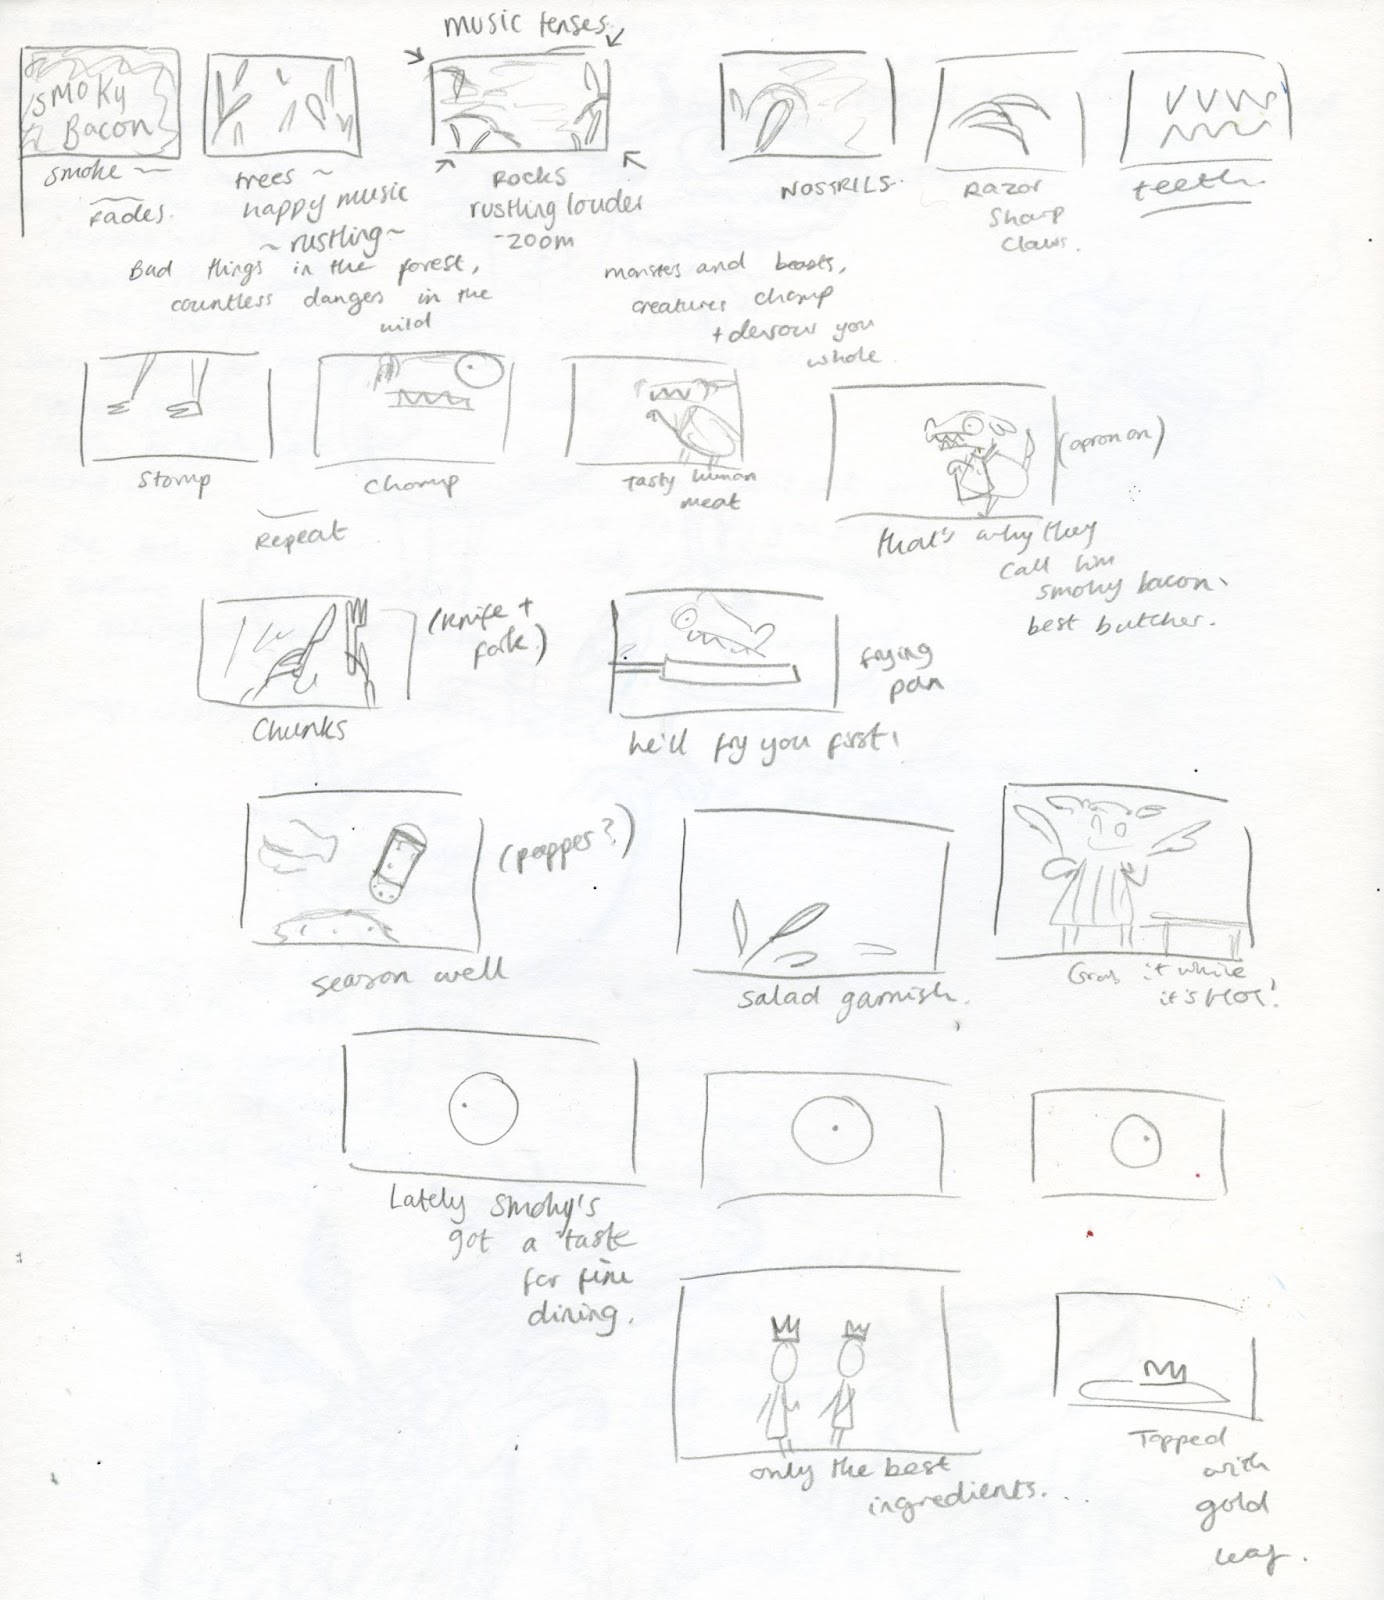 music tenses
SMOKY
Bacon
smoke ~
fades.
trees ~
happy music
~ rustling ~
Rocks
rustling louder
-zoom
NOSTRILS.
Razor
Sharp
Claws.
teeth.
Bad things in the forest,
countless dangers in the
wild
monsters and beasts,
creatures chomp
+ devour you
whole.
Stomp
Chomp
Repeat
Tasty human
meat
(apron on)
that's why they
call him
smoky bacon,
best butcher.
(knife +
fork.)
Chunks
frying
pan
he'll fry you first!
(pepper?)
season well
salad garnish.
Grab it while
it's HOT!
Lately Smoky's
got a taste
for fine
dining.
only the best
ingredients...
Topped
with
gold
leaf.